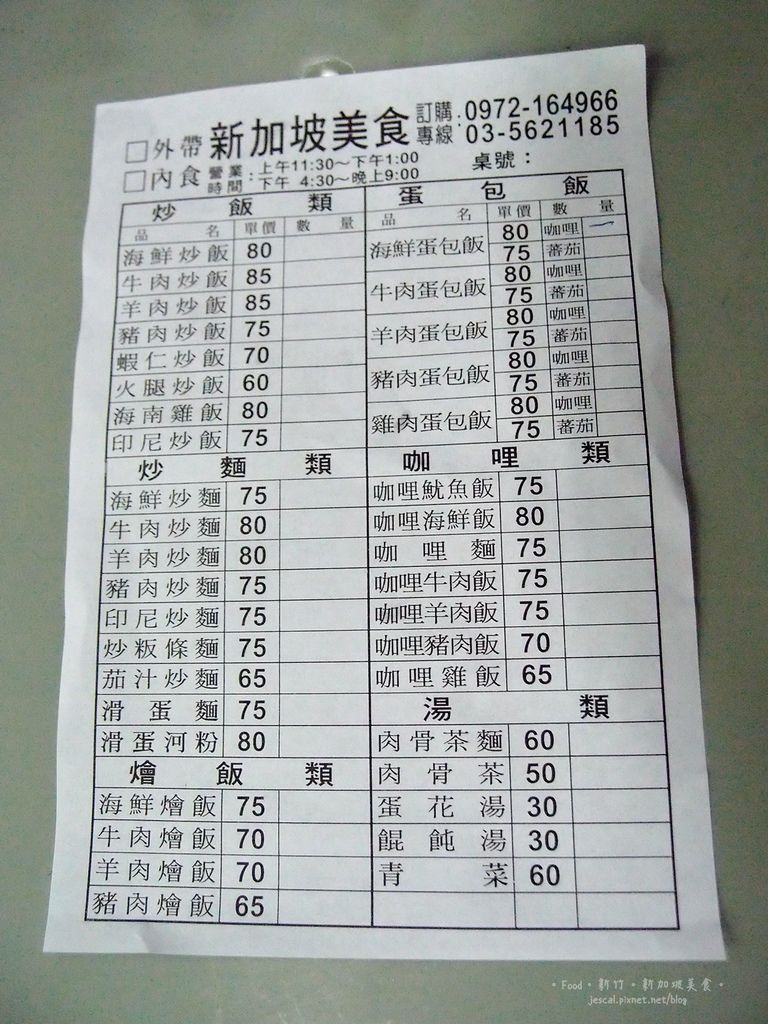 □外帶 新加坡美食 訂購專線:0972-164966
03-5621185
□內食 營業時間:上午11:30～下午1:00
下午 4:30～晚上9:00
桌號：
炒飯類
品名 單價 數量
海鮮炒飯 80
牛肉炒飯 85
羊肉炒飯 85
豬肉炒飯 75
蝦仁炒飯 70
火腿炒飯 60
海南雞飯 80
印尼炒飯 75
炒麵類
海鮮炒麵 75
牛肉炒麵 80
羊肉炒麵 80
豬肉炒麵 75
印尼炒麵 75
炒粄條麵 75
茄汁炒麵 65
滑蛋麵 75
滑蛋河粉 80
燴飯類
海鮮燴飯 75
牛肉燴飯 70
羊肉燴飯 70
豬肉燴飯 65
蛋包飯
品名 單價 數量
海鮮蛋包飯 80 咖哩 一
75 蕃茄
牛肉蛋包飯 80 咖哩
75 蕃茄
羊肉蛋包飯 80 咖哩
75 蕃茄
豬肉蛋包飯 80 咖哩
75 蕃茄
雞肉蛋包飯 80 咖哩
75 蕃茄
咖哩類
咖哩魷魚飯 75
咖哩海鮮飯 80
咖哩麵 75
咖哩牛肉飯 75
咖哩羊肉飯 75
咖哩豬肉飯 70
咖哩雞飯 65
湯類
肉骨茶麵 60
肉骨茶 50
蛋花湯 30
餛飩湯 30
青菜 60
·Food·新竹·新加坡美食·
jescal.pixnet.net/blog